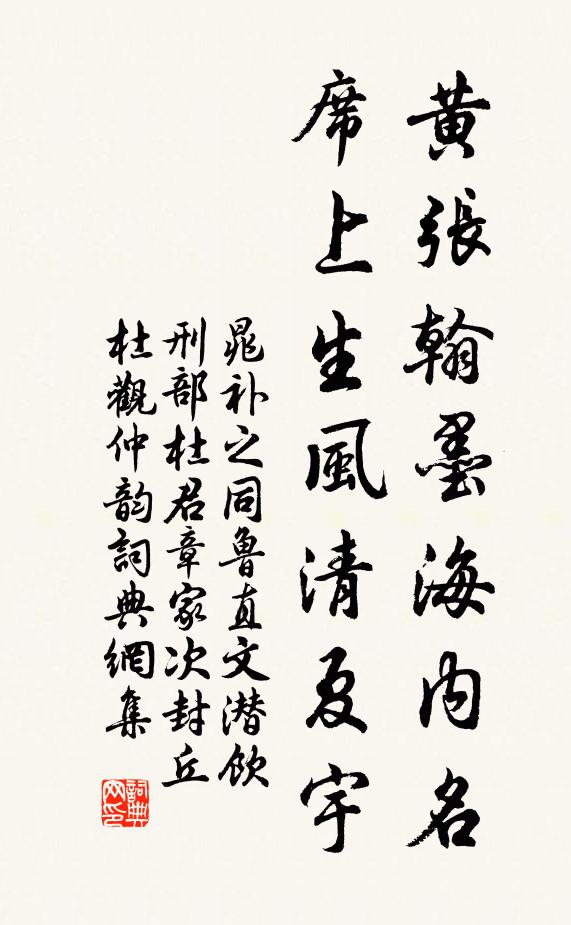 黄張翰墨海内名
席上生風清夏宇
晁补之同魯直文潛飲
刑部杜君章家次封丘
杜觀仲韵詞典網集
詞典
网印